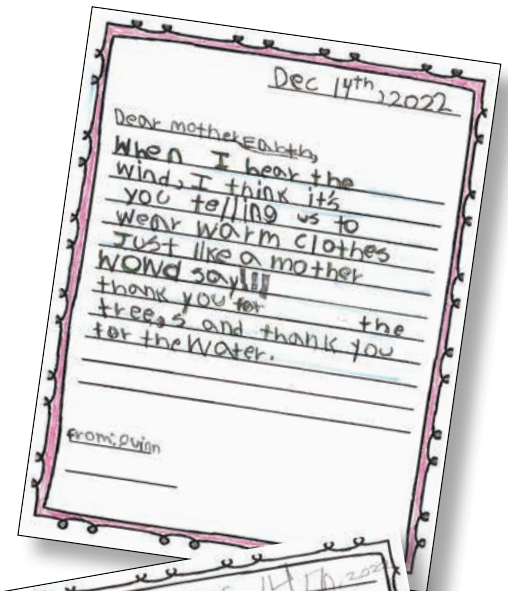 Dec 14th, 2022
Dear mother Earth,
When I hear the
wind, I think it's
you telling us to
wear warm clothes
Just like a mother
WOWd say!!!
thank you for the
trees and thank you
for the Water.
from: Quinn
14th, 2022